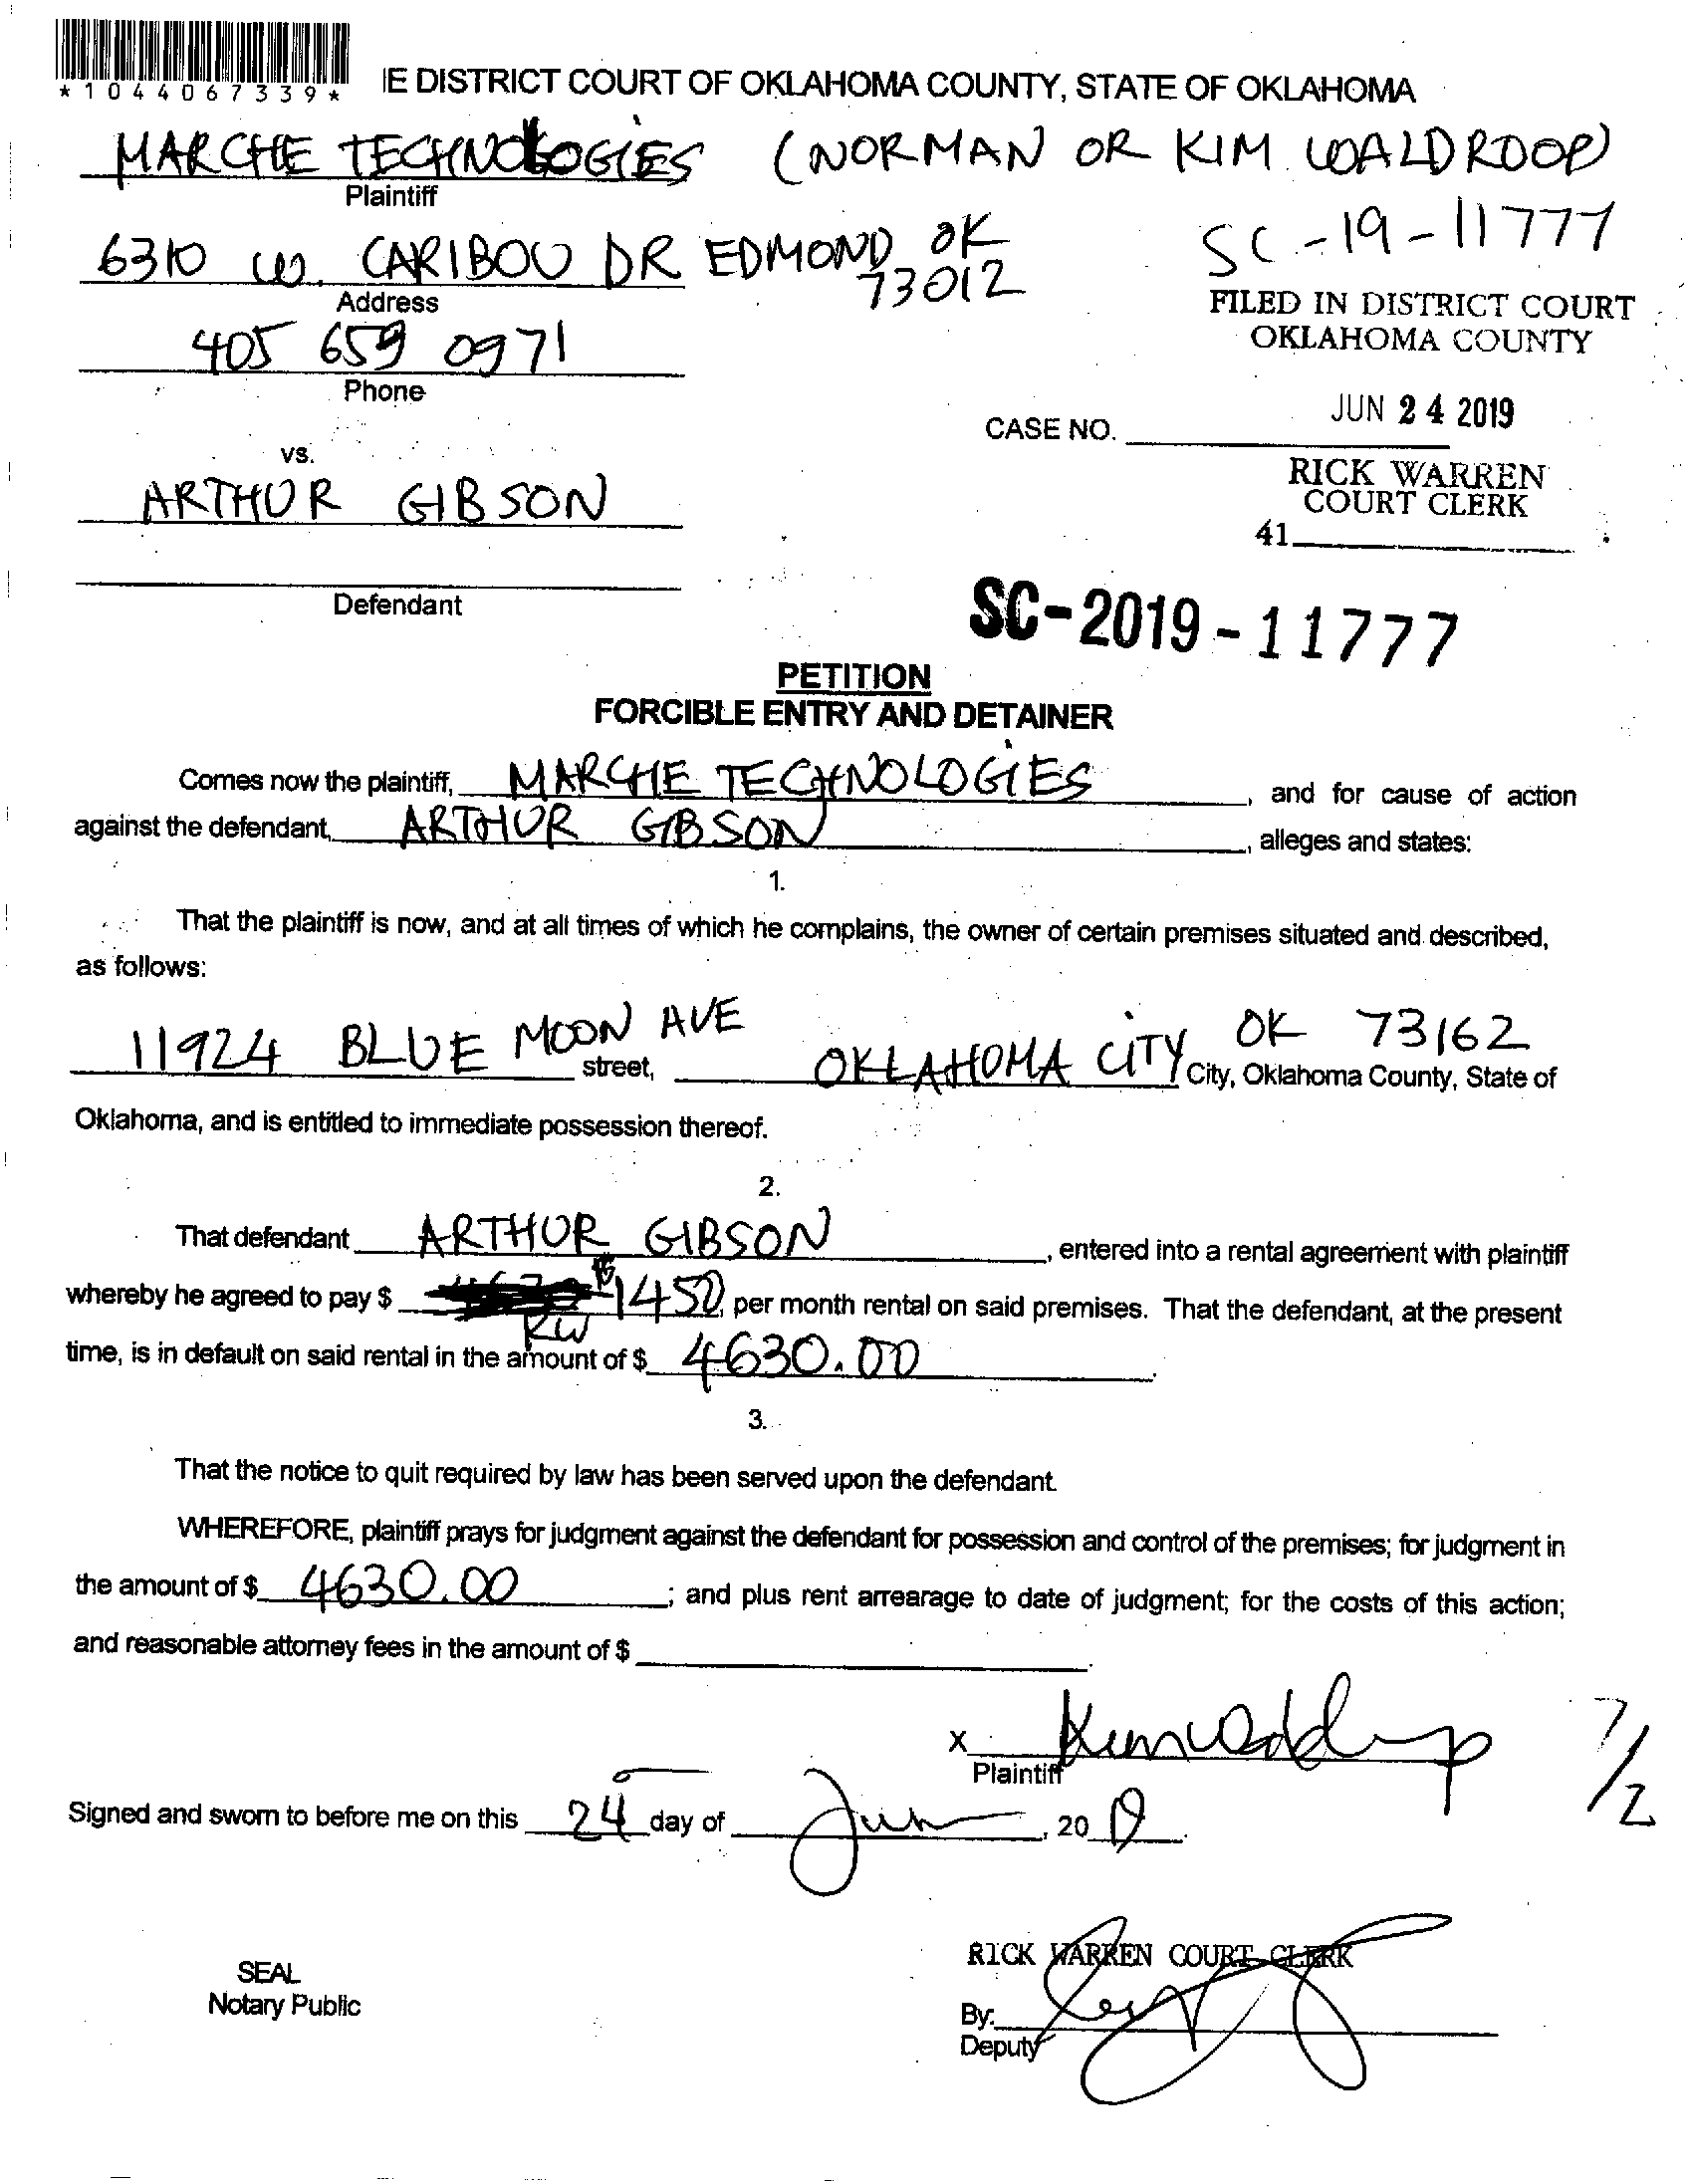 *1044067339*
IE DISTRICT COURT OF OKLAHOMA COUNTY, STATE OF OKLAHOMA
MARCHE TECHNOLOGIES (NORMAN OR KIM WALDROOP)
Plaintiff
SC-19-11777
6310 W. CARIBOU DR EDMOND, OK
73012
Address
FILED IN DISTRICT COURT
OKLAHOMA COUNTY
405 659 0971
Phone
JUN 24 2019
CASE NO.
vs.
RICK WARREN
COURT CLERK
ARTHUR GIBSON
41
Defendant
SC-2019-11777
PETITION
FORCIBLE ENTRY AND DETAINER
Comes now the plaintiff, MARCHE TECHNOLOGIES, and for cause of action
against the defendant, ARTHUR GIBSON, alleges and states:
1.
That the plaintiff is now, and at all times of which he complains, the owner of certain premises situated and described,
as follows:
11924 BLUE MOON AVE street, OKLAHOMA CITY OK 73162 City, Oklahoma County, State of
Oklahoma, and is entitled to immediate possession thereof.
2.
That defendant ARTHUR GIBSON, entered into a rental agreement with plaintiff
whereby he agreed to pay $ $1450, per month rental on said premises. That the defendant, at the present
KW
time, is in default on said rental in the amount of $ 4630.00.
3.
That the notice to quit required by law has been served upon the defendant.
WHEREFORE, plaintiff prays for judgment against the defendant for possession and control of the premises; for judgment in
the amount of $ 4630.00; and plus rent arrearage to date of judgment; for the costs of this action;
and reasonable attorney fees in the amount of $.
X Kim Waldroop
Plaintiff
7/2
Signed and sworn to before me on this 24 day of Jun, 2019.
RICK WARREN COURT CLERK
SEAL
Notary Public
By:
Deputy